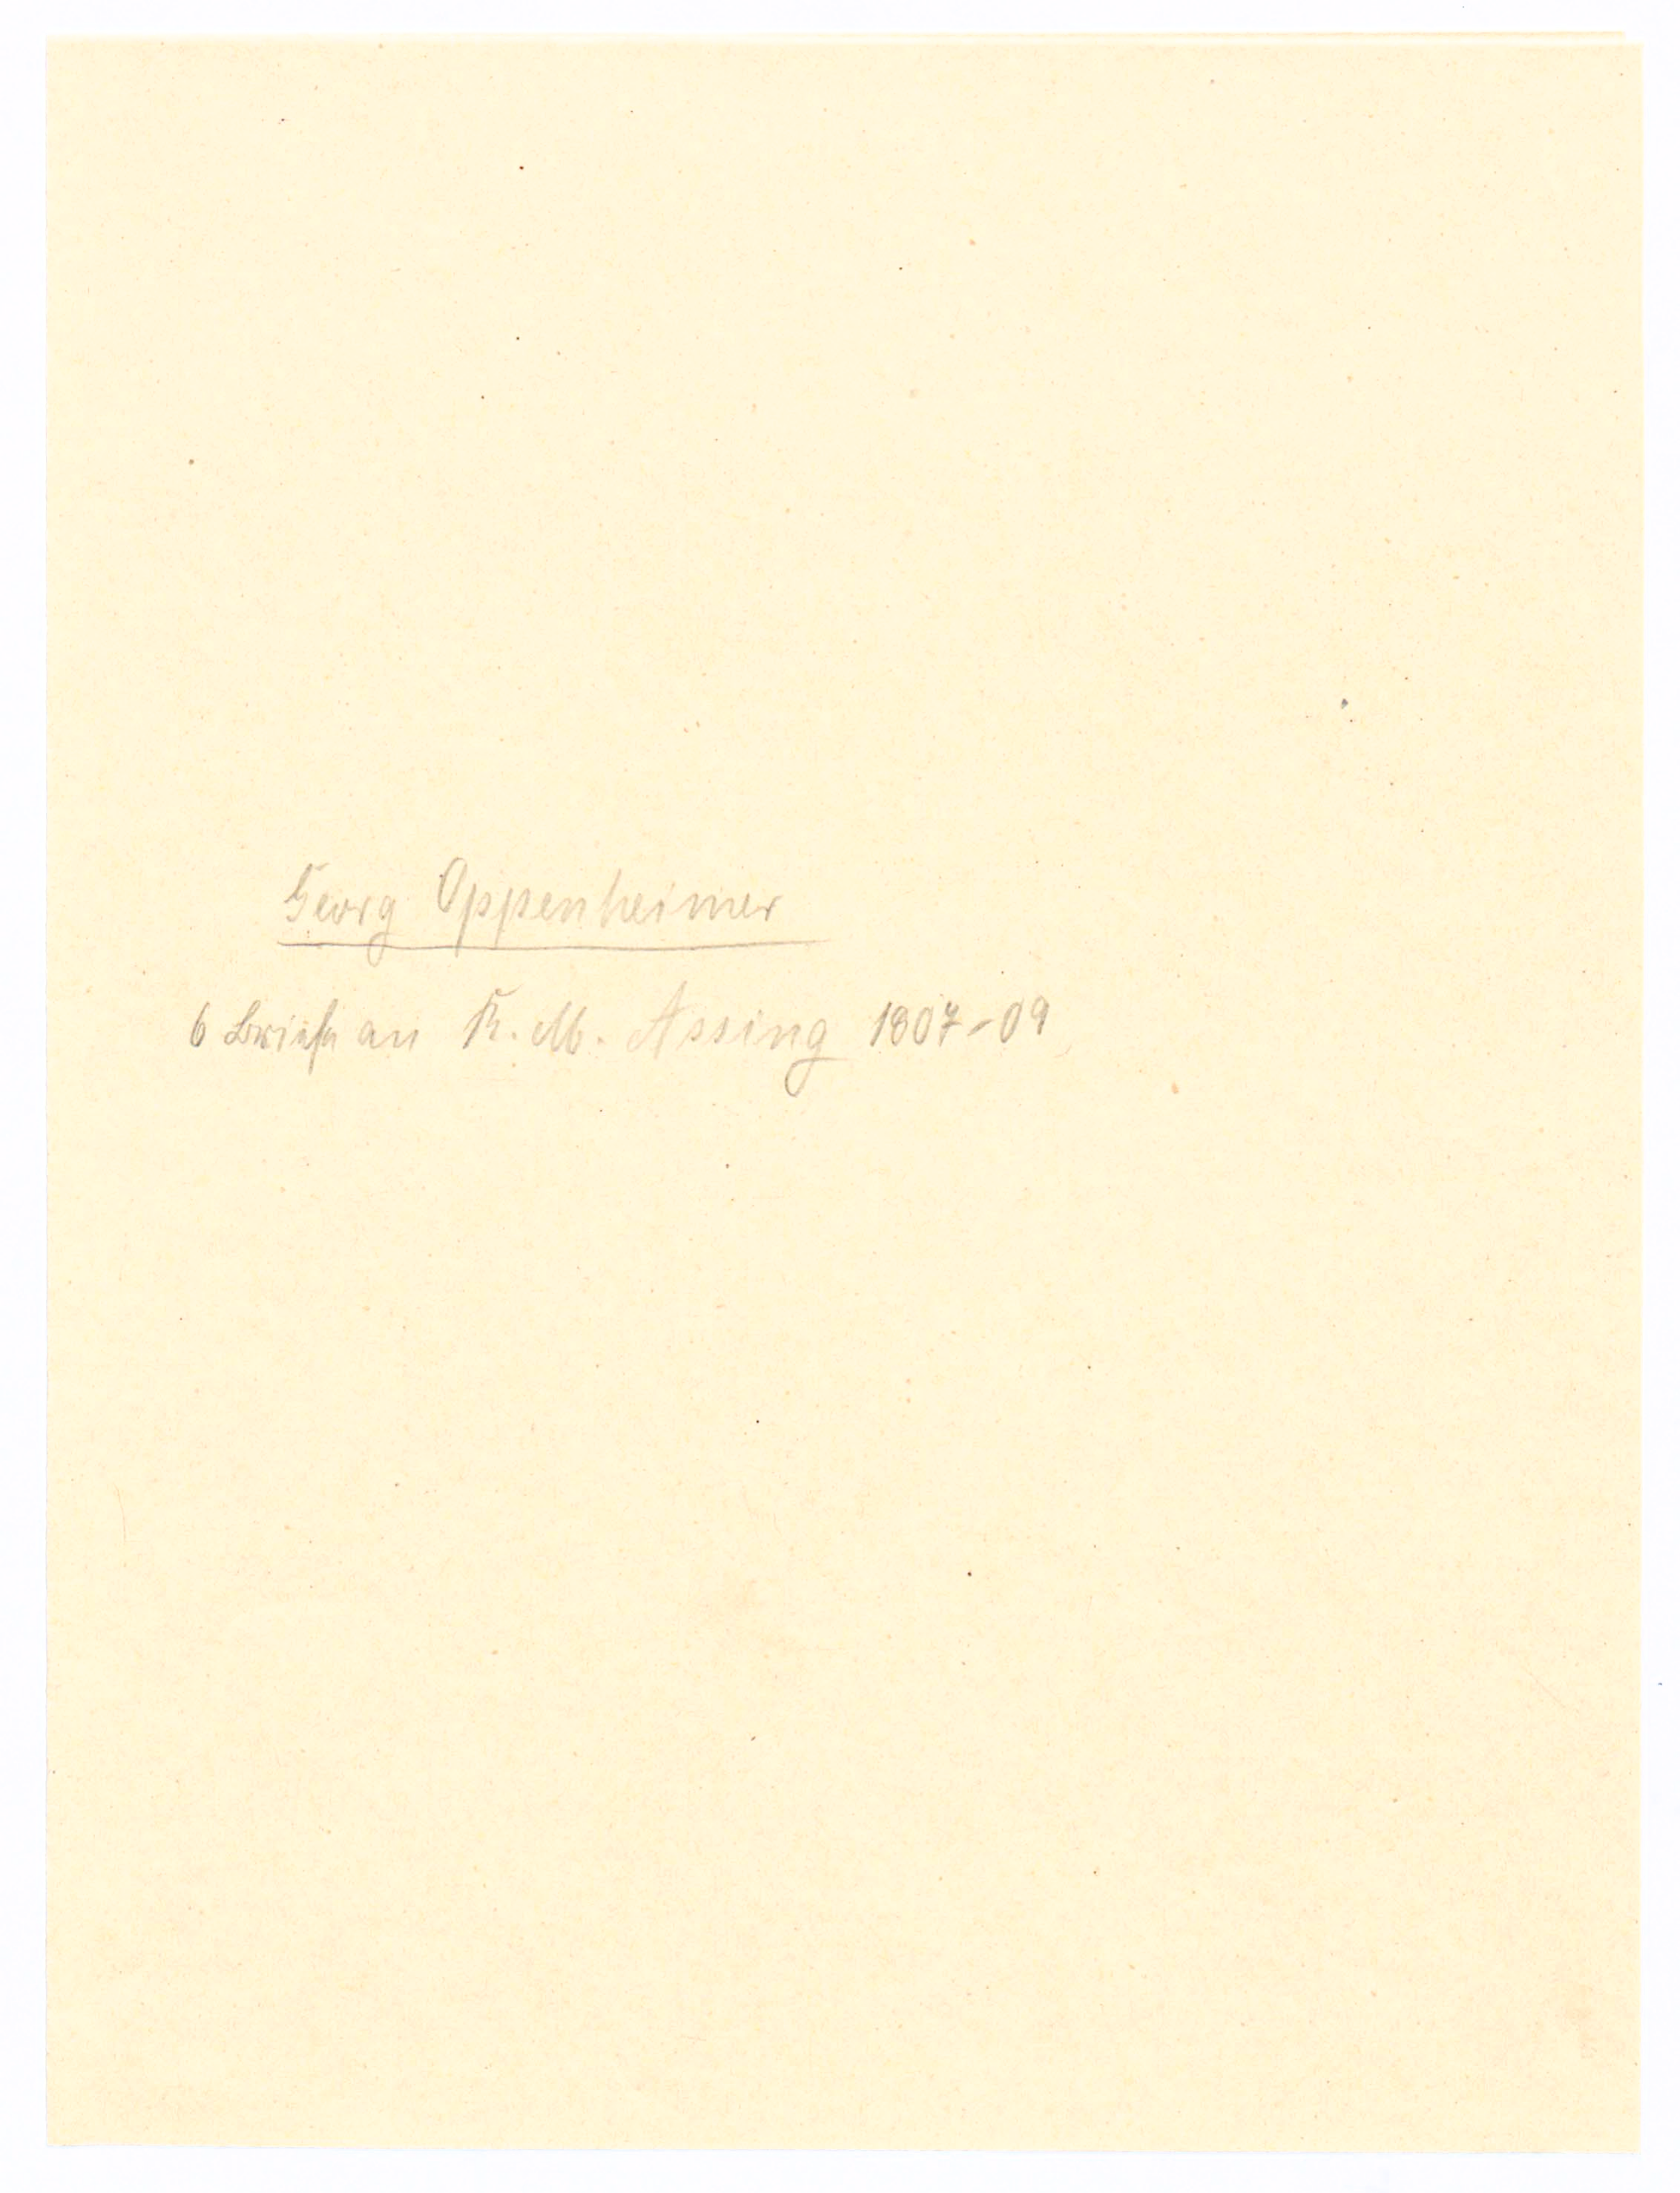 Georg Oppenheimer
6 Briefe an R. M. Assing 1807-09